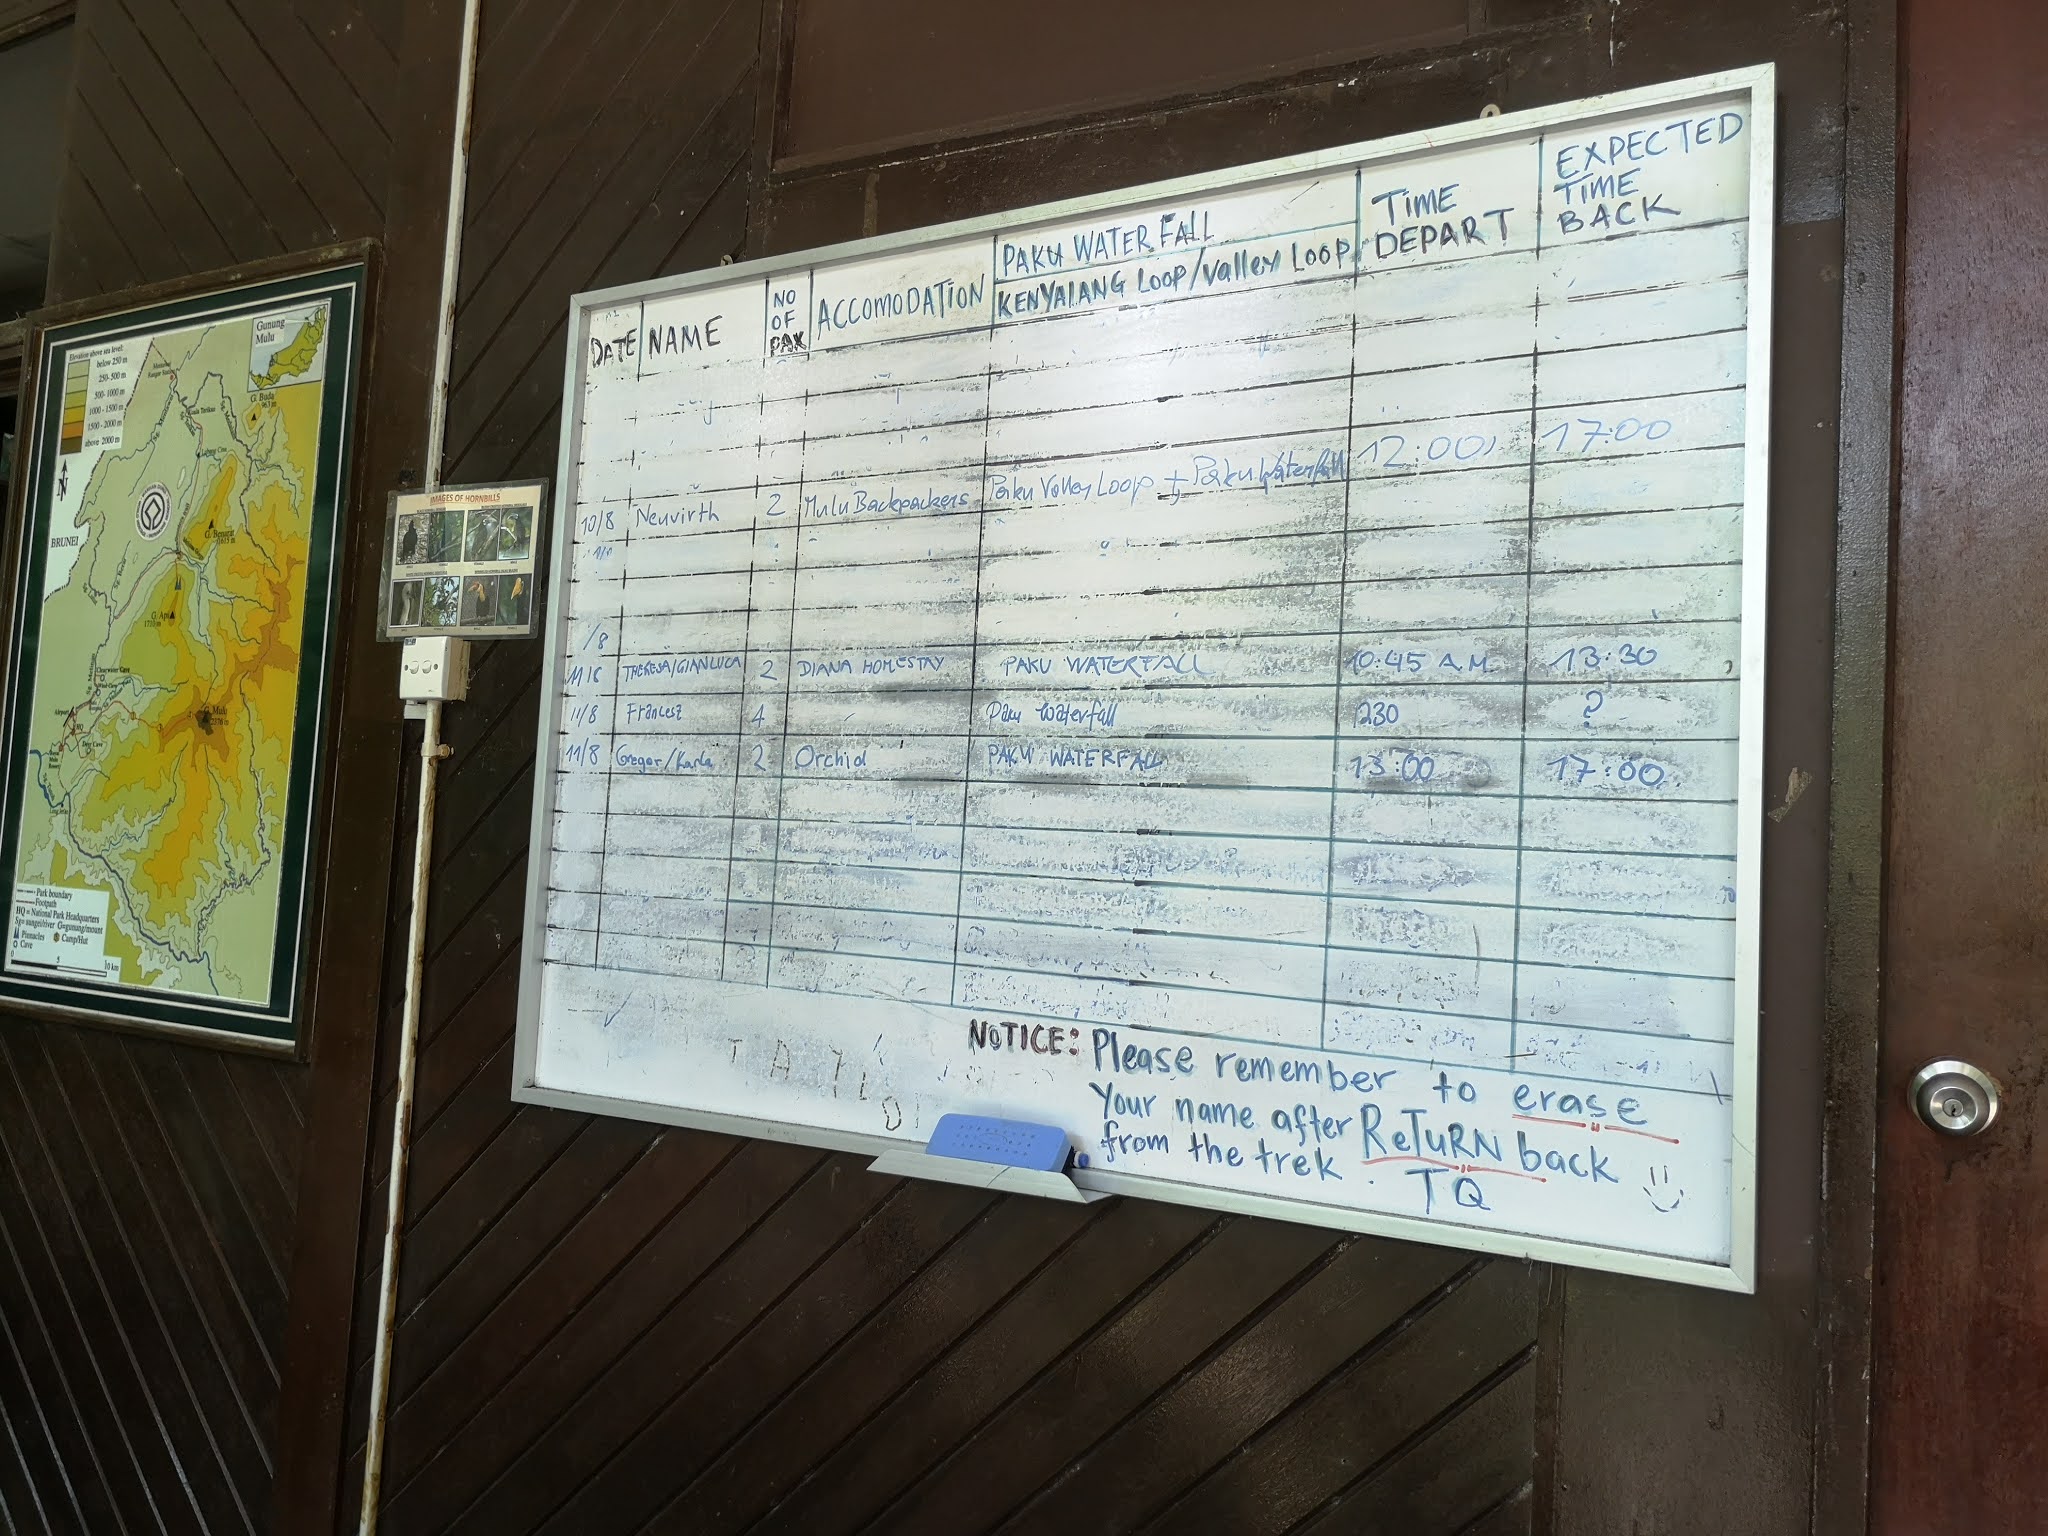 Gunung
Mulu
Elevation above sea level:
below 250 m
250-500 m
500-1000 m
1000-1500 m
1500-2000 m
above 2000 m
N
BRUNEI
G. Buda
963 m
G. Benarat
G. Api
1710 m
G. Mulu
2376 m
Clearwater Cave
Airport
HQ
Deer Cave
Park boundary
Footpath
HQ = National Park Headquarters
Sg = sungei/river G=gunung/mount
Pinnacles
Camp/Hut
Cave
0 5 10 km
IMAGES OF HORNBILLS
DATE NAME NO OF PAX ACCOMODATION PAKU WATERFALL TIME DEPART EXPECTED TIME BACK
KENYALANG LOOP/Valley LOOP
10/8 Neuvirth 2 Mulu Backpackers Paku Valley Loop + Paku Waterfall 12:00 17:00
/8
11/8 THERESA/GIANLUCA 2 DIANA HOMESTAY PAKU WATERFALL 10:45 A.M. 13:30
11/8 4 Paku Waterfall 1230 ?
11/8 Gregor/Karla 2 Orchid PAKU WATERFALL 13:00 17:00
NOTICE: Please remember to erase
Your name after ReTuRN back
from the trek. TQ